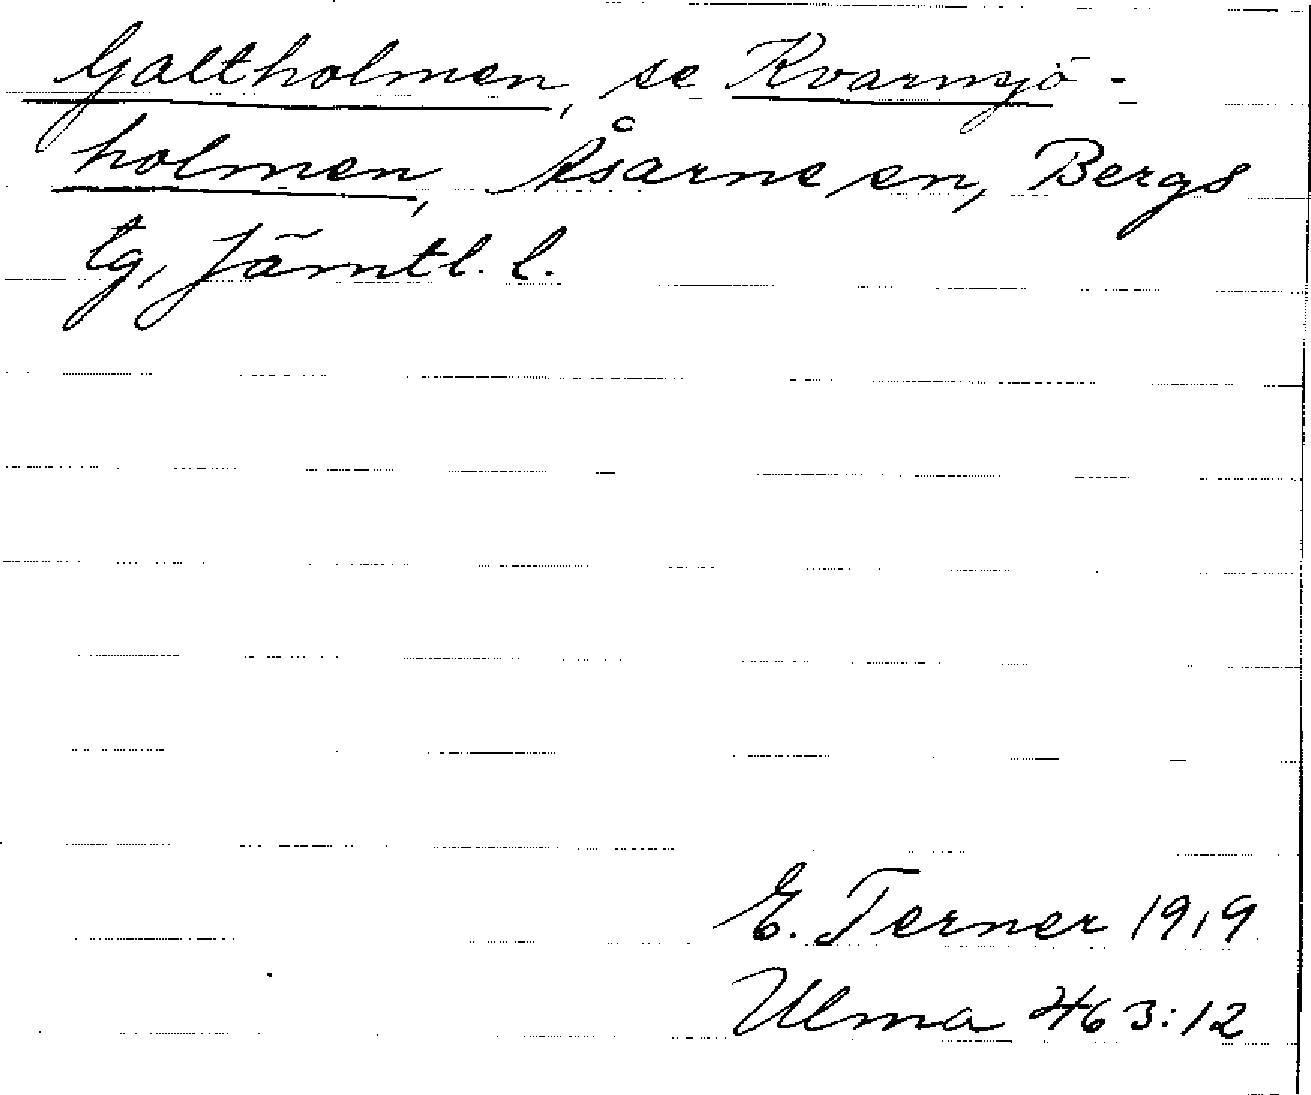 Galtholmen, se Kvarnsjö-
holmen, Åsarne sn, Bergs
tg, Jämtl. l.
E. Terner 1919
Ulma 463:12